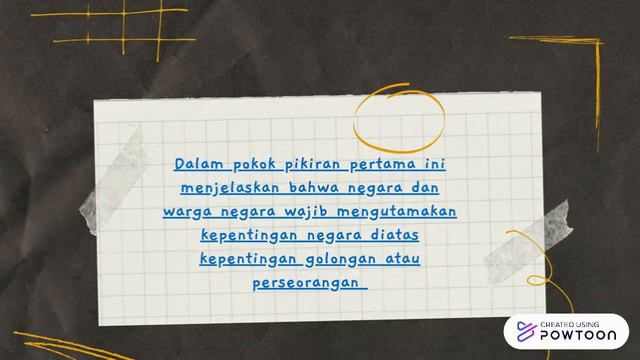 Dalam pokok pikiran pertama ini
menjelaskan bahwa negara dan
warga negara wajib mengutamakan
kepentingan negara diatas
kepentingan golongan atau
perseorangan
CREATED USING
POWTOON